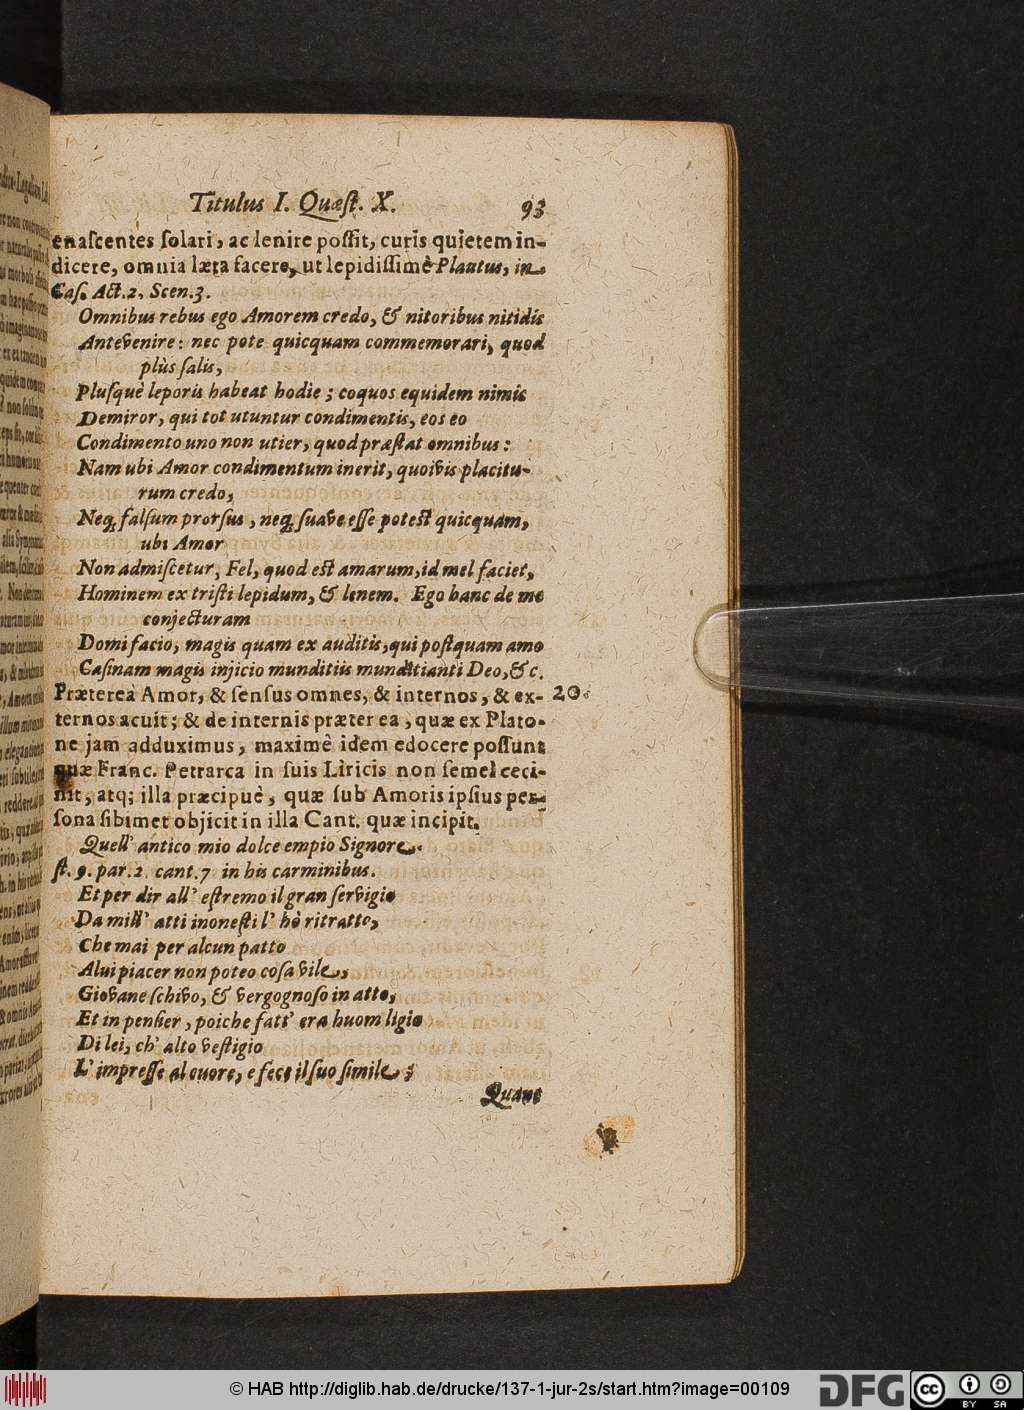 Titulus I. Quæst. X. 93
enascentes solari, ac lenire possit, curis quietem in-
dicere, omnia læta facere, ut lepidissimè Plautus, in
Cas. Act. 2. Scen. 3.
Omnibus rebus ego Amorem credo, & nitoribus nitidis
Antevenire: nec pote quicquam commemorari, quod
plùs salis,
Plusquè leporis habeat hodie; coquos equidem nimis
Demiror, qui tot utuntur condimentis, eos eo
Condimento uno non utier, quod præstat omnibus:
Nam ubi Amor condimentum inerit, quoivis placitu-
rum credo,
Neq; falsum prorsus, neq; suave esse potest quicquam,
ubi Amor
Non admiscetur, Fel, quod est amarum, id mel faciet,
Hominem ex tristi lepidum, & lenem. Ego hanc de me
conjecturam
Domi facio, magis quam ex auditis, qui postquam amo
Casinam magis injicio munditiis munditianti Deo, &c.
Prætereà Amor, & sensus omnes, & internos, & ex- 20.
ternos acuit; & de internis præter ea, quæ ex Plato-
ne jam adduximus, maximè idem edocere possunt
quæ Franc. Petrarca in suis Liricis non semel ceci-
nit, atq; illa præcipuè, quæ sub Amoris ipsius per-
sona sibimet objicit in illa Cant. quæ incipit.
Quell' antico mio dolce empio Signore.
st. 9. par. 2. cant. 7 in his carminibus.
Et per dir all' estremo il gran servigio
Da mill' atti inonesti l' hò ritratto,
Che mai per alcun patto
A lui piacer non poteo cosa vile,
Giovane schivo, & vergognoso in atto,
Et in pensier, poiche fatt' era huom ligio
Di lei, ch' alto vestigio
L' impresse al cuore, e fece il suo simile;
Quant
© HAB http://diglib.hab.de/drucke/137-1-jur-2s/start.htm?image=00109
DFG
cc BY SA